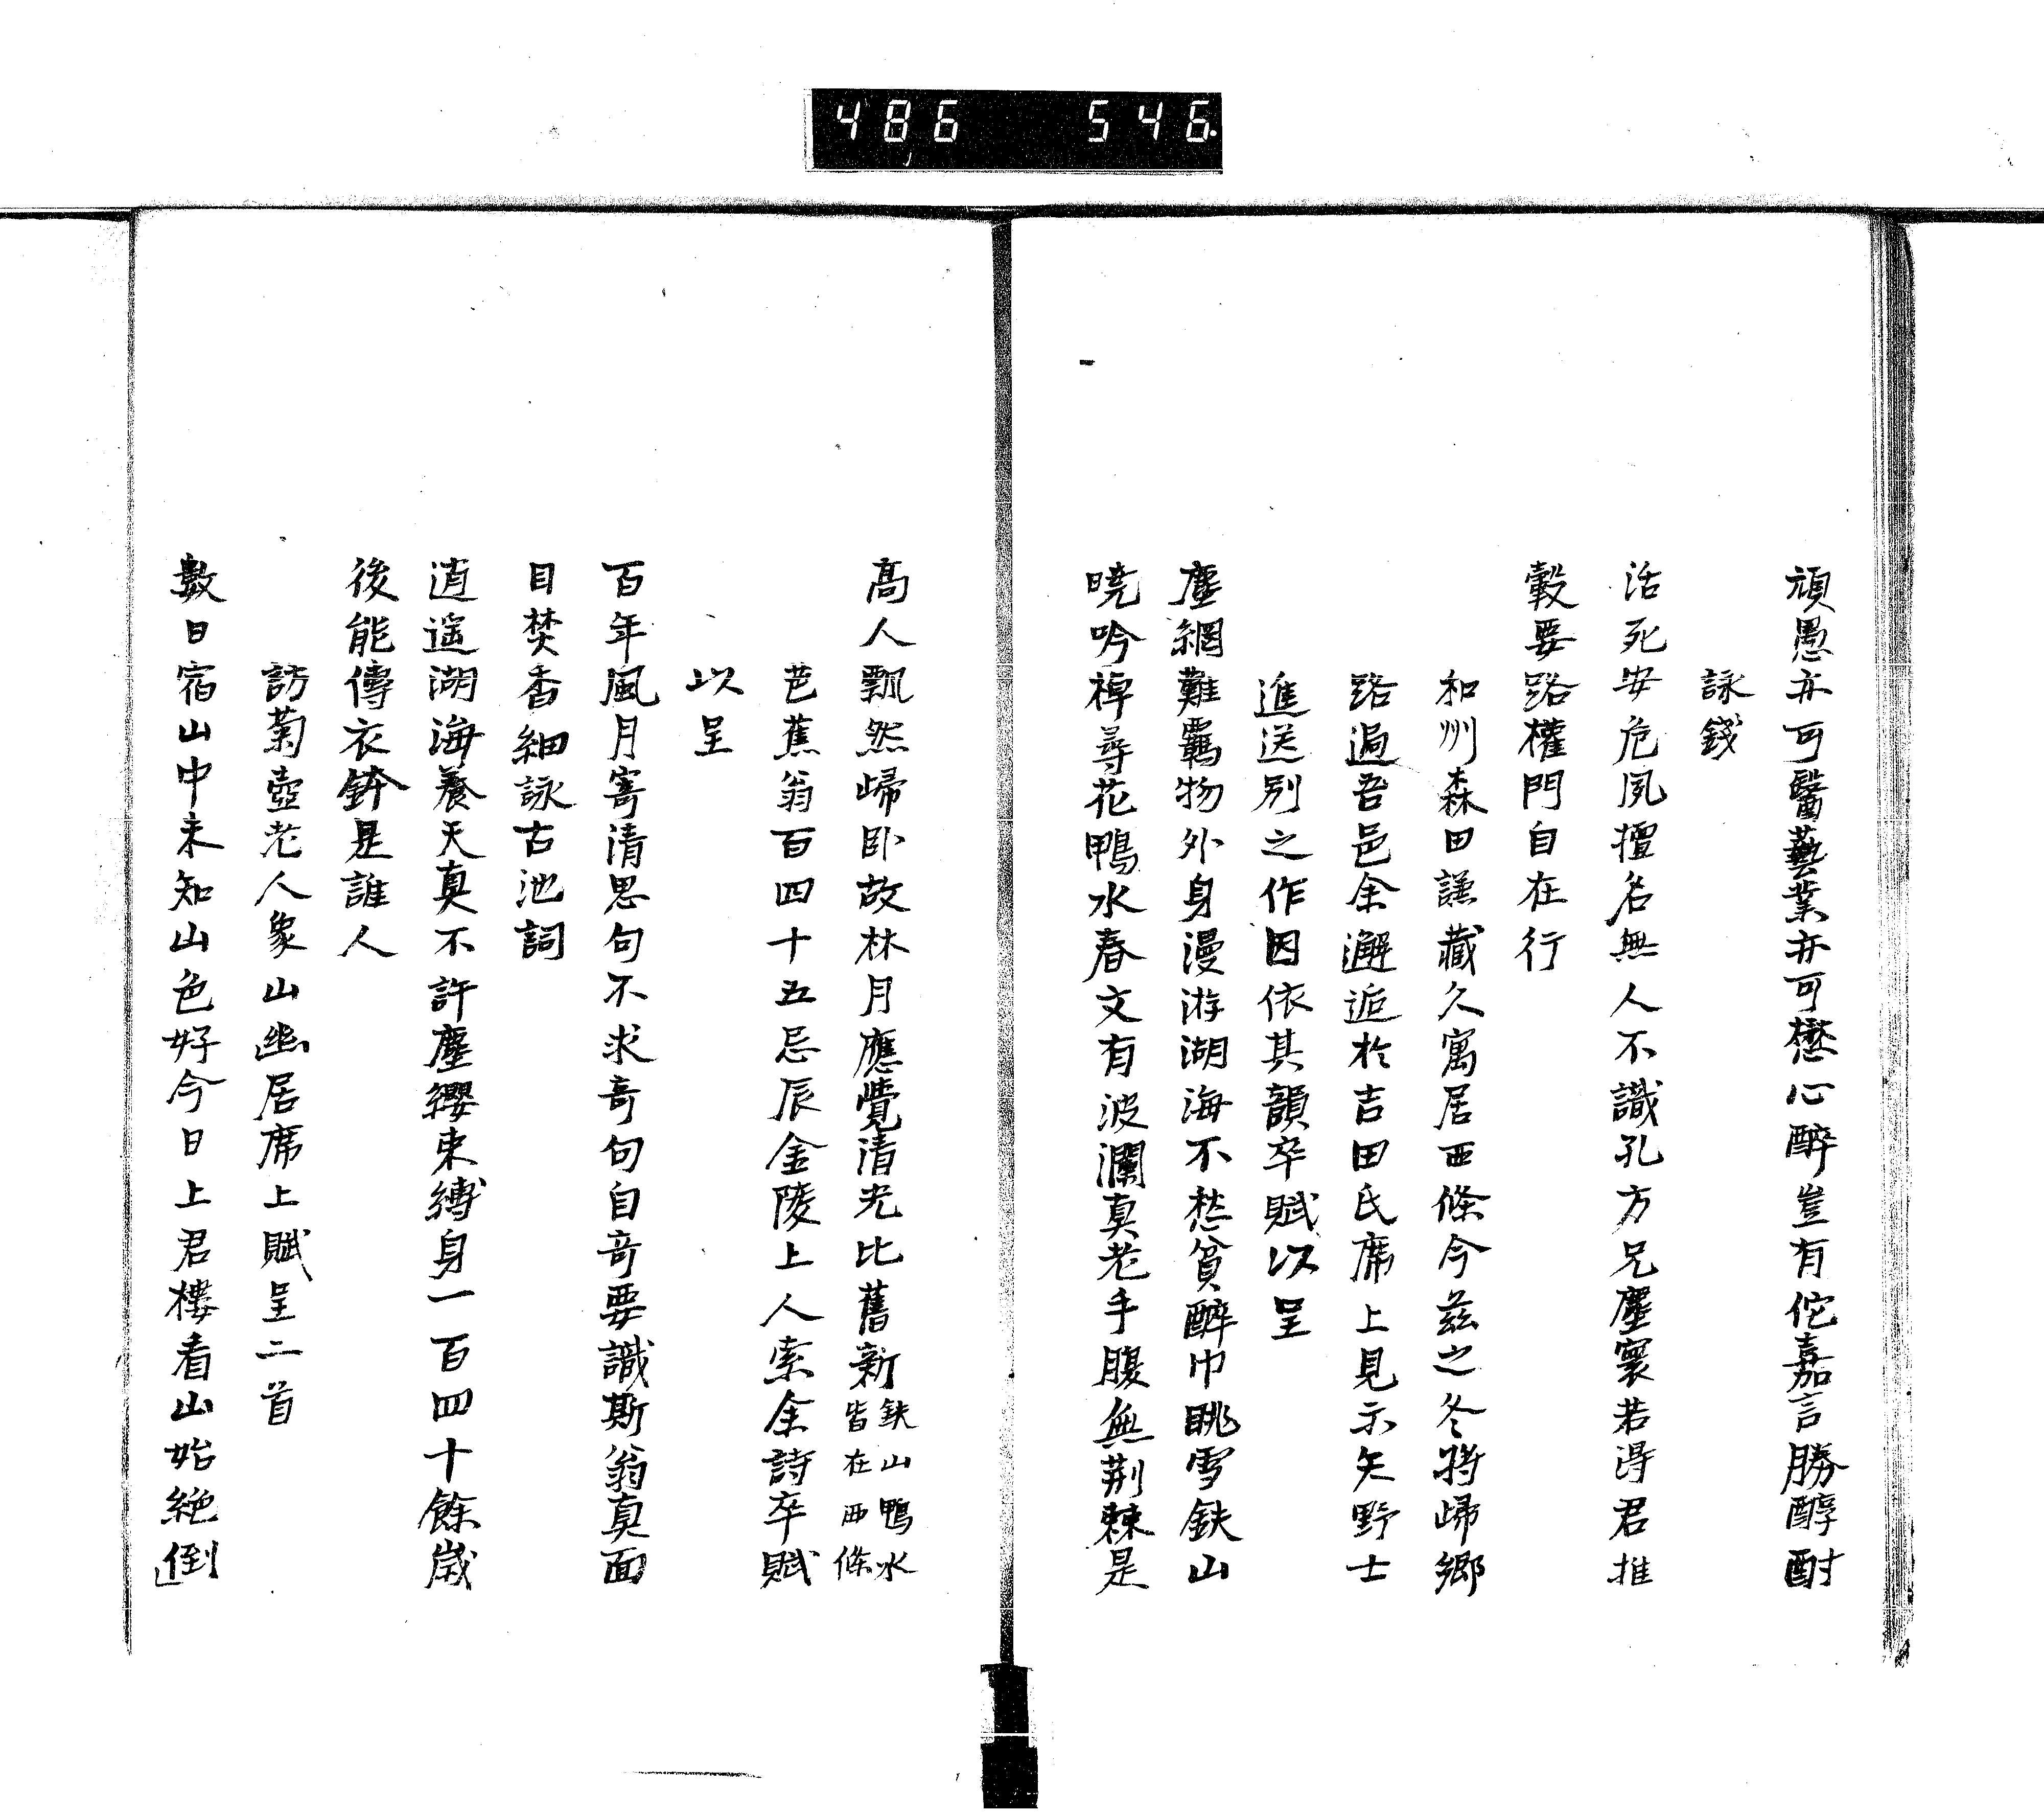 486 546
頑愚亦可醫藝業亦可懋心醉豈有佗嘉言勝醇酎
詠錢
活死安危夙擅名無人不識孔方兄塵寰若得君推
轂要路權門自在行
和州森田謙藏久寓居西條今茲之冬將歸鄉
路過吾邑余邂逅於吉田氏席上見示矢野士
進送別之作因依其韻卒賦以呈
塵網難羈物外身漫游湖海不愁貧醉巾眺雪鈇山
曉吟禆尋花鴨水春文有波瀾真老手腹無荆棘是
高人飄然歸卧故林月應覺清光比舊新鈇山鴨水
皆在西條
芭蕉翁百四十五忌辰金陵上人索余詩卒賦
以呈
百年風月寄清思句不求奇句自奇要識斯翁真面
目焚香細詠古池詞
逍遙湖海養天真不許塵纓束縛身一百四十餘歲
後能傳衣鉢是誰人
訪菊壺老人象山幽居席上賦呈二首
數日宿山中未知山色好今日上君樓看山始絶倒